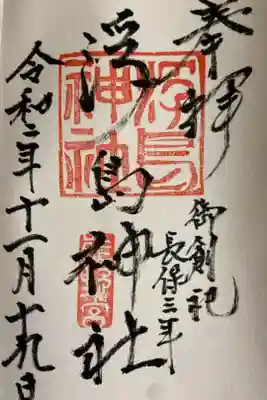 奉拝
御創祀
長保三年
浮島神社
浮島神社
令和二年十一月十九日